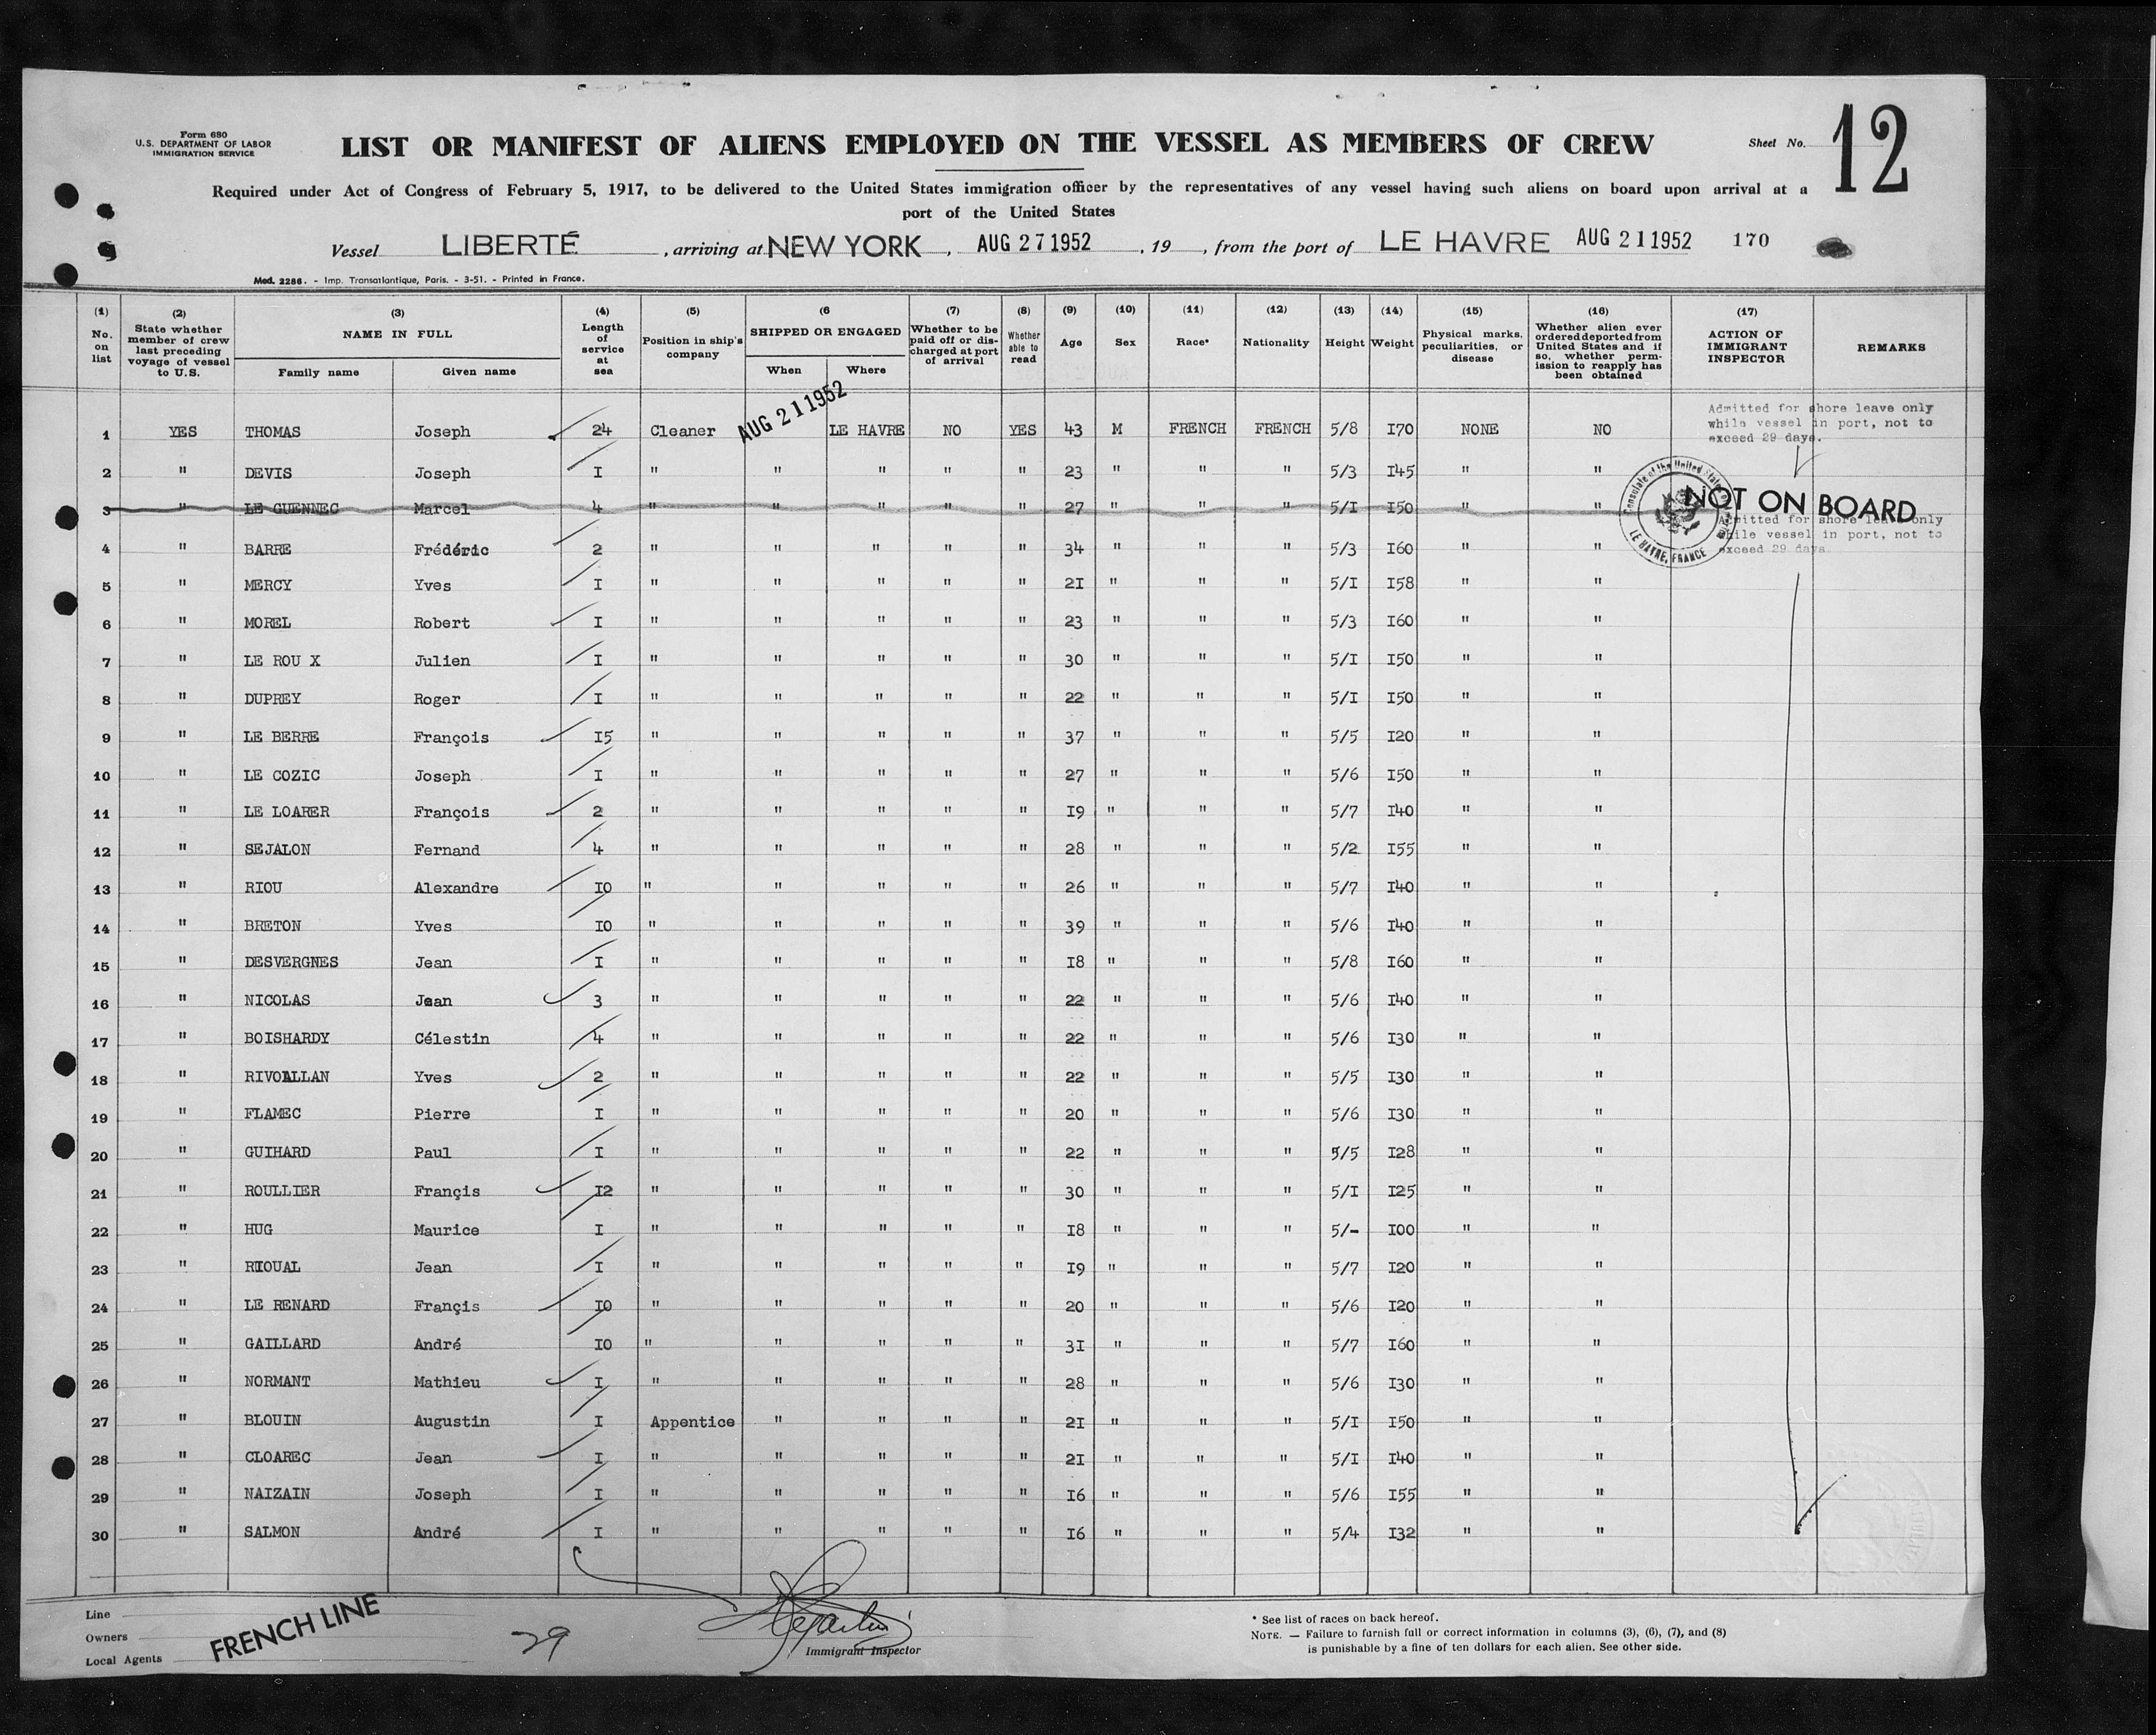 Form 680
U.S. DEPARTMENT OF LABOR
IMMIGRATION SERVICE
LIST OR MANIFEST OF ALIENS EMPLOYED ON THE VESSEL AS MEMBERS OF CREW
Sheet No. 12
Required under Act of Congress of February 5, 1917, to be delivered to the United States immigration officer by the representatives of any vessel having such aliens on board upon arrival at a
port of the United States
Vessel LIBERTÉ , arriving at NEW YORK , AUG 27 1952 , 19 , from the port of LE HAVRE AUG 21 1952 170
Mod. 2286. - Imp. Transatlantique, Paris. - 3-51. - Printed in France.
(1) No. on list (2) State whether member of crew last preceding voyage of vessel to U.S. (3) NAME IN FULL Family name Given name (4) Length of service at sea (5) Position in ship's company (6 SHIPPED OR ENGAGED When Where (7) Whether to be paid off or discharged at port of arrival (8) Whether able to read (9) Age (10) Sex (11) Race* (12) Nationality (13) Height (14) Weight (15) Physical marks, peculiarities, or disease (16) Whether alien ever ordered deported from United States and if so, whether permission to reapply has been obtained (17) ACTION OF IMMIGRANT INSPECTOR REMARKS
Admitted for shore leave only
while vessel in port, not to
exceed 29 days.
1 YES THOMAS Joseph 24 Cleaner AUG 21 1952 LE HAVRE NO YES 43 M FRENCH FRENCH 5/8 I70 NONE NO
2 " DEVIS Joseph I " " " " " 23 " " " 5/3 I45 " "
3 " LE GUENNEC Marcel 4 " " " " " 27 " " " 5/I I50 " " NOT ON BOARD
Consulate of the United States LE HAVRE, FRANCE
Admitted for shore leave only
while vessel in port, not to
exceed 29 days.
4 " BARRE Frédéric 2 " " " " " 34 " " " 5/3 I60 " "
5 " MERCY Yves I " " " " " 2I " " " 5/I I58 " "
6 " MOREL Robert I " " " " " 23 " " " 5/3 I60 " "
7 " LE ROU X Julien I " " " " " 30 " " " 5/I I50 " "
8 " DUPREY Roger I " " " " " 22 " " " 5/I I50 " "
9 " LE BERRE François I5 " " " " " 37 " " " 5/5 I20 " "
10 " LE COZIC Joseph I " " " " " 27 " " " 5/6 I50 " "
11 " LE LOARER François 2 " " " " " I9 " " " 5/7 I40 " "
12 " SEJALON Fernand 4 " " " " " 28 " " " 5/2 I55 " "
13 " RIOU Alexandre IO " " " " " 26 " " " 5/7 I40 " "
14 " BRETON Yves IO " " " " " 39 " " " 5/6 I40 " "
15 " DESVERGNES Jean I " " " " " I8 " " " 5/8 I60 " "
16 " NICOLAS Jean 3 " " " " " 22 " " " 5/6 I40 " "
17 " BOISHARDY Célestin 4 " " " " " 22 " " " 5/6 I30 " "
18 " RIVOALLAN Yves 2 " " " " " 22 " " " 5/5 I30 " "
19 " FLAMEC Pierre I " " " " " 20 " " " 5/6 I30 " "
20 " GUIHARD Paul I " " " " " 22 " " " 5/5 I28 " "
21 " ROULLIER Françis I2 " " " " " 30 " " " 5/I I25 " "
22 " HUG Maurice I " " " " " I8 " " " 5/- I00 " "
23 " RIOUAL Jean I " " " " " I9 " " " 5/7 I20 " "
24 " LE RENARD Françis IO " " " " " 20 " " " 5/6 I20 " "
25 " GAILLARD André IO " " " " " 3I " " " 5/7 I60 " "
26 " NORMANT Mathieu I " " " " " 28 " " " 5/6 I30 " "
27 " BLOUIN Augustin I Appentice " " " " 2I " " " 5/I I50 " "
28 " CLOAREC Jean I " " " " " 2I " " " 5/I I40 " "
29 " NAIZAIN Joseph I " " " " " I6 " " " 5/6 I55 " "
30 " SALMON André I " " " " " I6 " " " 5/4 I32 " "
Line
Owners
Local Agents
FRENCH LINE
29
Immigrant Inspector
* See list of races on back hereof.
NOTE. — Failure to furnish full or correct information in columns (3), (6), (7), and (8)
is punishable by a fine of ten dollars for each alien. See other side.